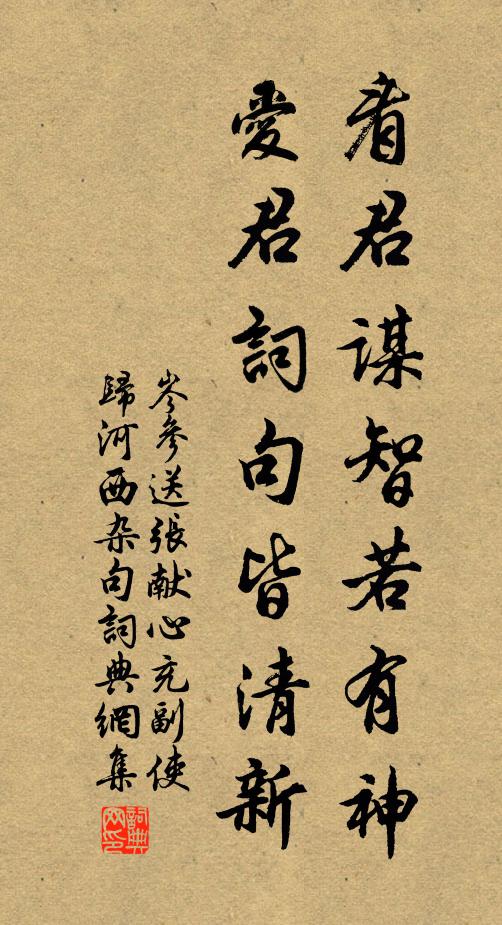 看君謀智若有神
愛君詞句皆清新
岑參送張献心充副使
歸河西杂句詞典網集
詞典
网印